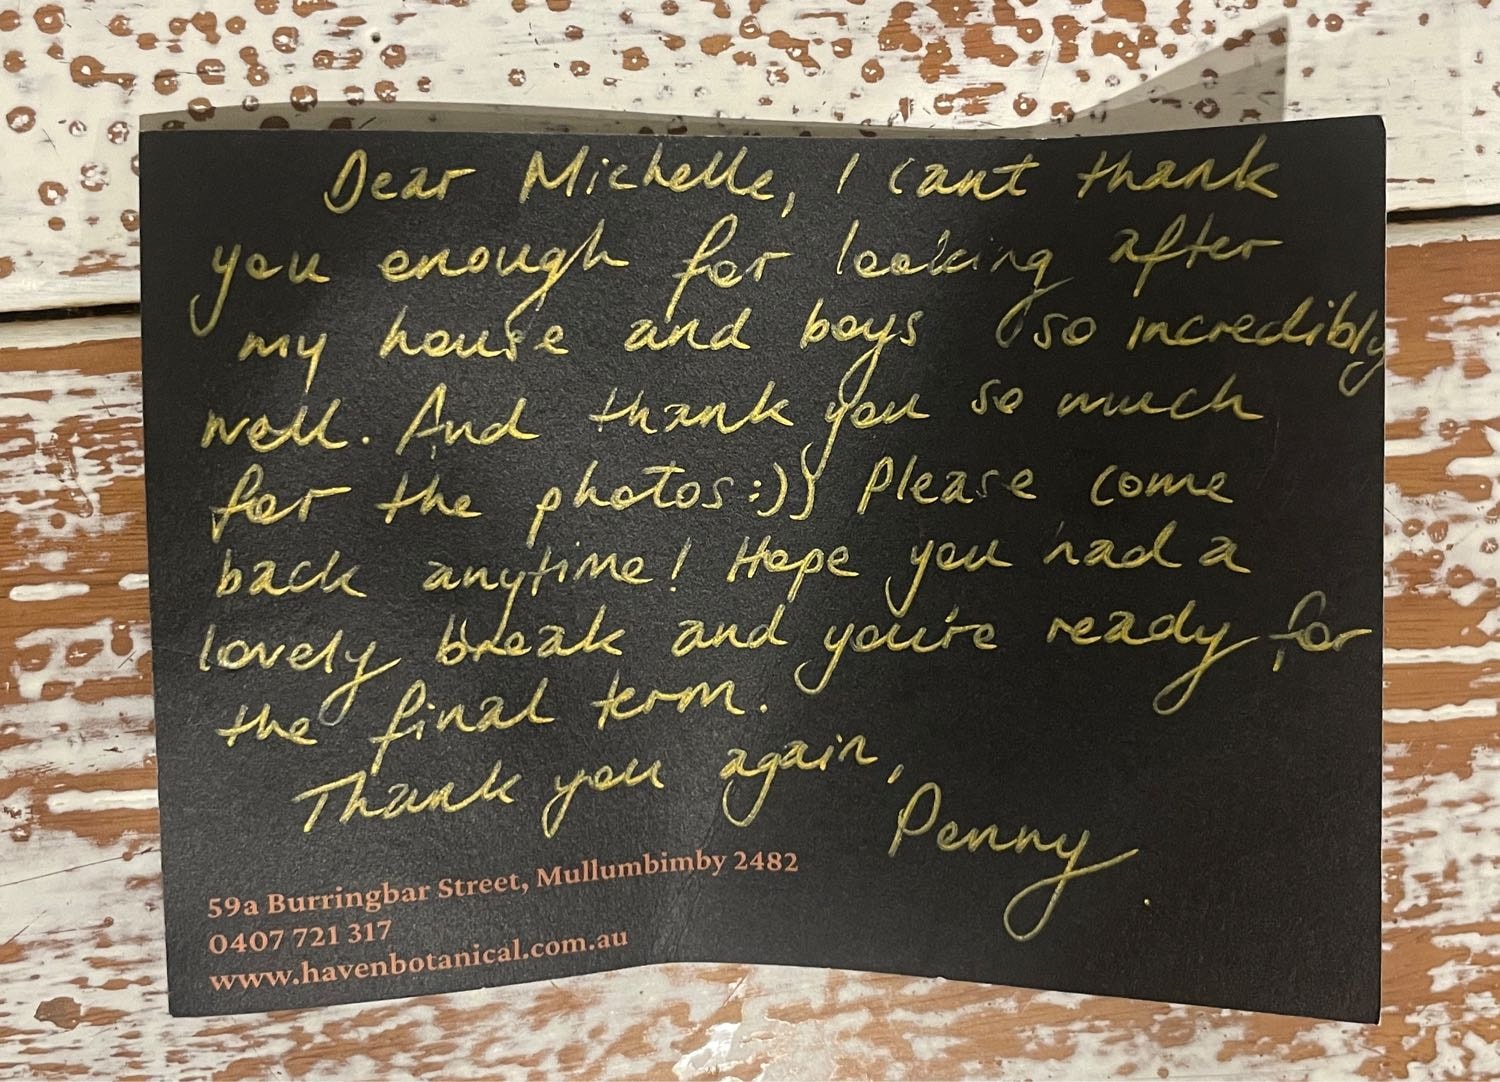 Dear Michelle, I cant thank
you enough for looking after
my house and boys so incredibly
well. And thank you so much
for the photos :)} Please come
back anytime! Hope you had a
lovely break and you're ready for
the final term.
Thank you again,
Penny.
59a Burringbar Street, Mullumbimby 2482
0407 721 317
www.havenbotanical.com.au